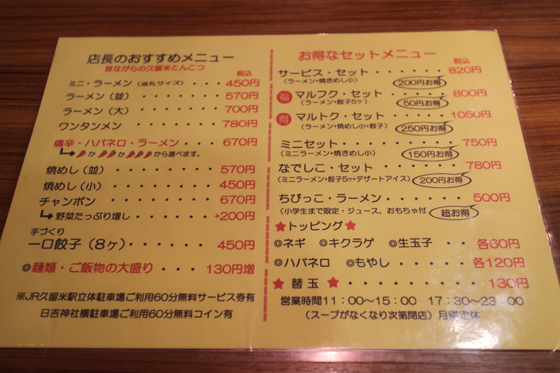 店長のおすすめメニュー
昔ながらの久留米とんこつ
税込
ミニ・ラーメン（お礼サイズ）・・・450円
ラーメン（並）・・・・・・570円
ラーメン（大）・・・・・・700円
ワンタンメン・・・・・・780円
痛辛・ハバネロ・ラーメン・・670円
か か から選べます。
焼めし（並）・・・・・・570円
焼めし（小）・・・・・・450円
チャンポン・・・・・・670円
野菜たっぷり増し・・・・+200円
手づくり
一口餃子（8ヶ）・・・・450円
◎麺類・ご飯物の大盛り・・・・130円増
※JR久留米駅立体駐車場ご利用60分無料サービス券有
日吉神社横駐車場ご利用60分無料コイン有
お得なセットメニュー
税込
サービス・セット・・・・・820円
（ラーメン+焼きめし小）
200円お得
福 マルフク・セット・・・・800円
（ラーメン+餃子5ヶ）
50円お得
得 マルトク・セット・・・・1050円
（ラーメン+焼めし小+餃子）
250円お得
ミニセット・・・・・・750円
（ミニラーメン+焼きめし小）
150円お得
なでしこ・セット・・・・780円
（ミニラーメン+餃子5ヶ+デザートアイス）
200円お得
ちびっこ・ラーメン・・・・500円
（小学生まで限定・ジュース、おもちゃ付）
超お得
★トッピング★
◎ネギ ◎キクラゲ ◎生玉子・・各60円
◎ハバネロ ◎もやし・・・・各120円
★替玉★・・・・・・・130円
営業時間11：00～15：00 17：30～23：00
（スープがなくなり次第閉店）月曜定休